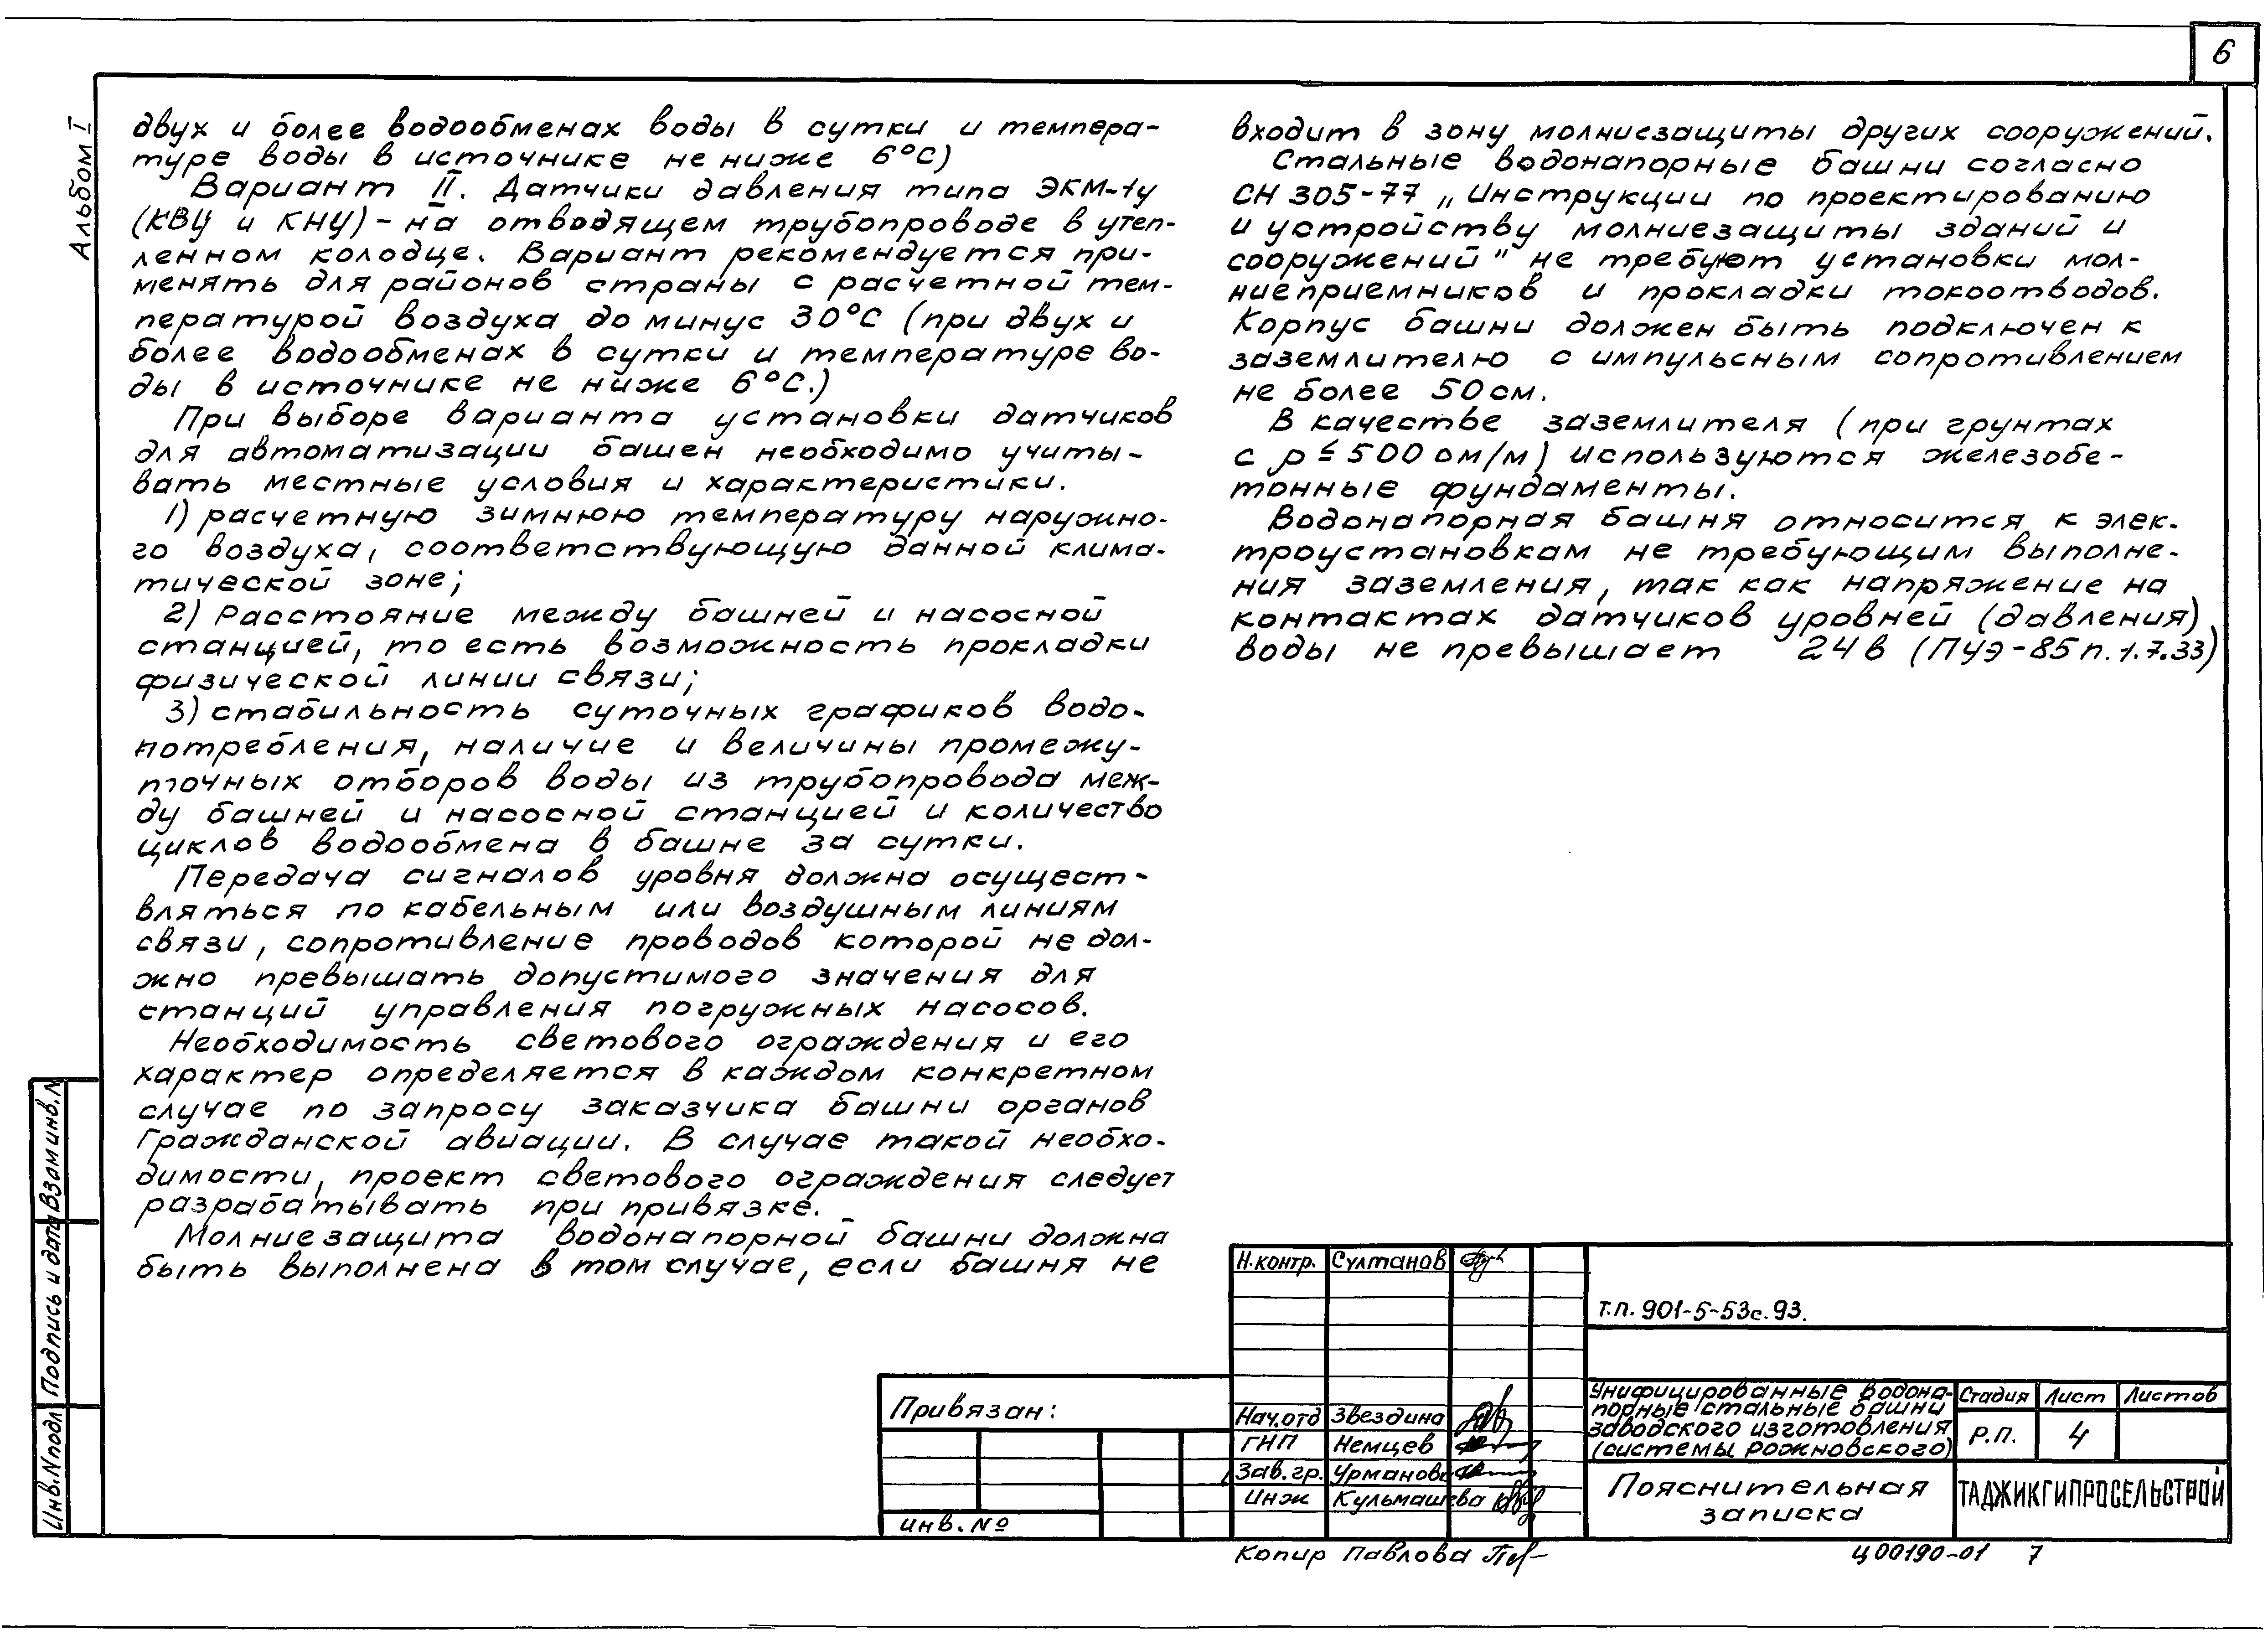 6
Альбом I
двух и более водообменах воды в сутки и темпера-
туре воды в источнике не ниже 6°С)
Вариант II. Датчики давления типа ЭКМ-1у
(КВУ и КНУ) - на отводящем трубопроводе в утеп-
ленном колодце. Вариант рекомендуется при-
менять для районов страны с расчетной тем-
пературой воздуха до минус 30°С (при двух и
более водообменах в сутки и температуре во-
ды в источнике не ниже 6°С.)
При выборе варианта установки датчиков
для автоматизации башен необходимо учиты-
вать местные условия и характеристики.
1) расчетную зимнюю температуру наружно-
го воздуха, соответствующую данной клима-
тической зоне;
2) Расстояние между башней и насосной
станцией, то есть возможность прокладки
физической линии связи;
3) стабильность суточных графиков водо-
потребления, наличие и величины промежу-
точных отборов воды из трубопровода меж-
ду башней и насосной станцией и количество
циклов водообмена в башне за сутки.
Передача сигналов уровня должна осущест-
вляться по кабельным или воздушным линиям
связи, сопротивление проводов которой не дол-
жно превышать допустимого значения для
станций управления погружных насосов.
Необходимость светового ограждения и его
характер определяется в каждом конкретном
случае по запросу заказчика башни органов
Гражданской авиации. В случае такой необхо-
димости, проект светового ограждения следует
разрабатывать при привязке.
Молниезащита водонапорной башни должна
быть выполнена в том случае, если башня не
входит в зону молниезащиты других сооружений.
Стальные водонапорные башни согласно
СН 305-77 „Инструкции по проектированию
и устройству молниезащиты зданий и
сооружений" не требуют установки мол-
ниеприемников и прокладки токоотводов.
Корпус башни должен быть подключен к
заземлителю с импульсным сопротивлением
не более 50см.
В качестве заземлителя (при грунтах
с ρ ≤ 500 ом/м) используются железобе-
тонные фундаменты.
Водонапорная башня относится к элек-
троустановкам не требующим выполне-
ния заземления, так как напряжение на
контактах датчиков уровней (давления)
воды не превышает 24в (ПУЭ-85 п.1.7.33)
Взам инв.N
Подпись и дата
Инв.N подл
Привязан:
инв.№
Н.контр. Султанов
Нач.отд Звездина
ГНП Немцев
Зав.гр. Урманова
Инж Кульмашева
т.п. 901-5-53с.93.
Унифицированные водона-
порные стальные башни
заводского изготовления
(системы рожновского)
Стадия Лист Листов
Р.П. 4
Пояснительная
записка
ТАДЖИКГИПРОСЕЛЬСТРОЙ
Копир Павлова
Ц00190-01 7